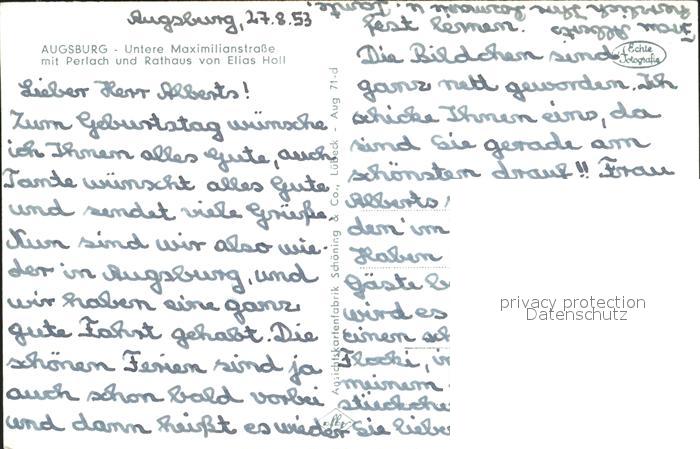 Augsburg, 27.8.53
AUGSBURG - Untere Maximilianstraße
mit Perlach und Rathaus von Elias Holl
Lieber Herr Alberts!
Zum Geburtstag wünsche
ich Ihnen alles Gute, auch
Tante wünscht alles Gute
und sendet viele Grüße.
Nun sind wir also wie-
der in Augsburg, und
wir haben eine ganz
gute Fahrt gehabt. Die
schönen Ferien sind ja
auch schon bald vorbei
und dann heißt es wieder
Ansichtskartenfabrik Schöning & Co., Lübeck - Aug 71-d
fest lernen.
Die Bildchen sind
ganz nett geworden. Ich
schicke Ihnen eins, da
sind Sie gerade am
schönsten drauf!! Frau
Alberts
den im
Haben
Gäste
wird es
einen
Flocki,
meinem
stückche
Sie liebe
Frau Alberts
herzlich Ihre u. Tante
Echte
Fotografie
privacy protection
Datenschutz